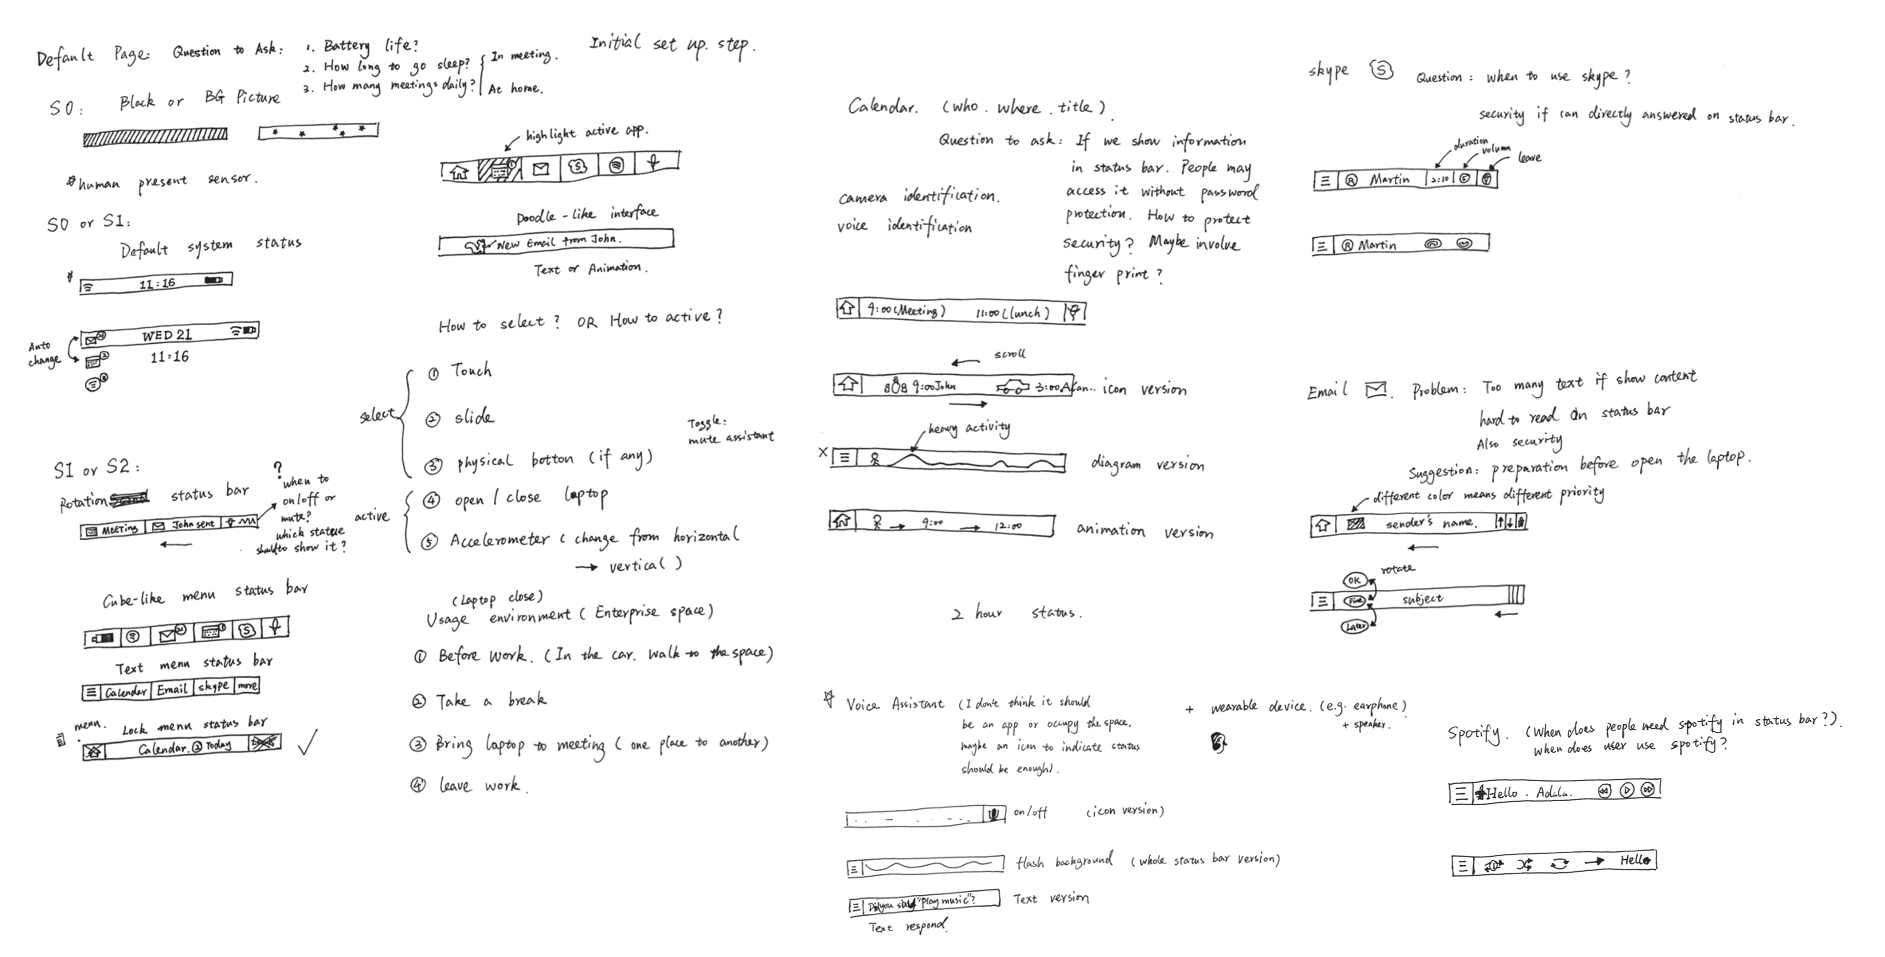 Default Page: Question to Ask: 1. Battery life?
2. How long to go sleep?
3. How many meetings daily?
In meeting.
At home.
Initial set up. step.
S0: Black or BG Picture
*human present sensor.
S0 or S1:
Default system status
11:16
WED 21
11:16
Auto
change
S1 or S2:
Rotation status bar
Meeting John sent
?
when to
on/off or
mute?
which statue
should to show it?
Cube-like menu status bar
Text menu status bar
Calendar Email skype more
menu.
Lock menu status bar
Calendar. Today
highlight active app.
Doodle-like interface
New Email from John.
Text or Animation.
How to select? OR How to active?
select
① Touch
② slide
③ physical botton (if any)
Toggle:
mute assistant
active
④ open / close laptop
⑤ Accelerometer (change from horizontal
→ vertical)
(Laptop close)
Usage environment (Enterprise space)
① Before work. (In the car. walk to the space)
② Take a break
③ Bring laptop to meeting (one place to another)
④ leave work.
Calendar. (who. where. title).
Question to ask: If we show information
in status bar. People may
access it without password
protection. How to protect
security? Maybe involve
finger print?
camera identification.
voice identification
9:00(Meeting) 11:00(lunch)
← scroll
9:00John 3:00 icon version
→
heavy activity
X diagram version
→ 9:00 → 12:00 animation version
2 hour status.
Voice Assistant (I don't think it should
be an app or occupy the space,
maybe an icon to indicate status
should be enough).
+ wearable device. (e.g. earphone)
+ speaker.
on/off (icon version)
flash background (whole status bar version)
Did you say "Play music"? Text version
Text respond.
skype S Question: when to use skype?
security if can directly answered on status bar.
duration
volumn
leave
Martin 2:10
Martin
Email Problem: Too many text if show content
hard to read on status bar
Also security
Suggestion: preparation before open the laptop.
different color means different priority
sender's name.
rotate
OK
subject
Later
Spotify. (When does people need spotify in status bar?).
when does user use spotify?
Hello.
Hello